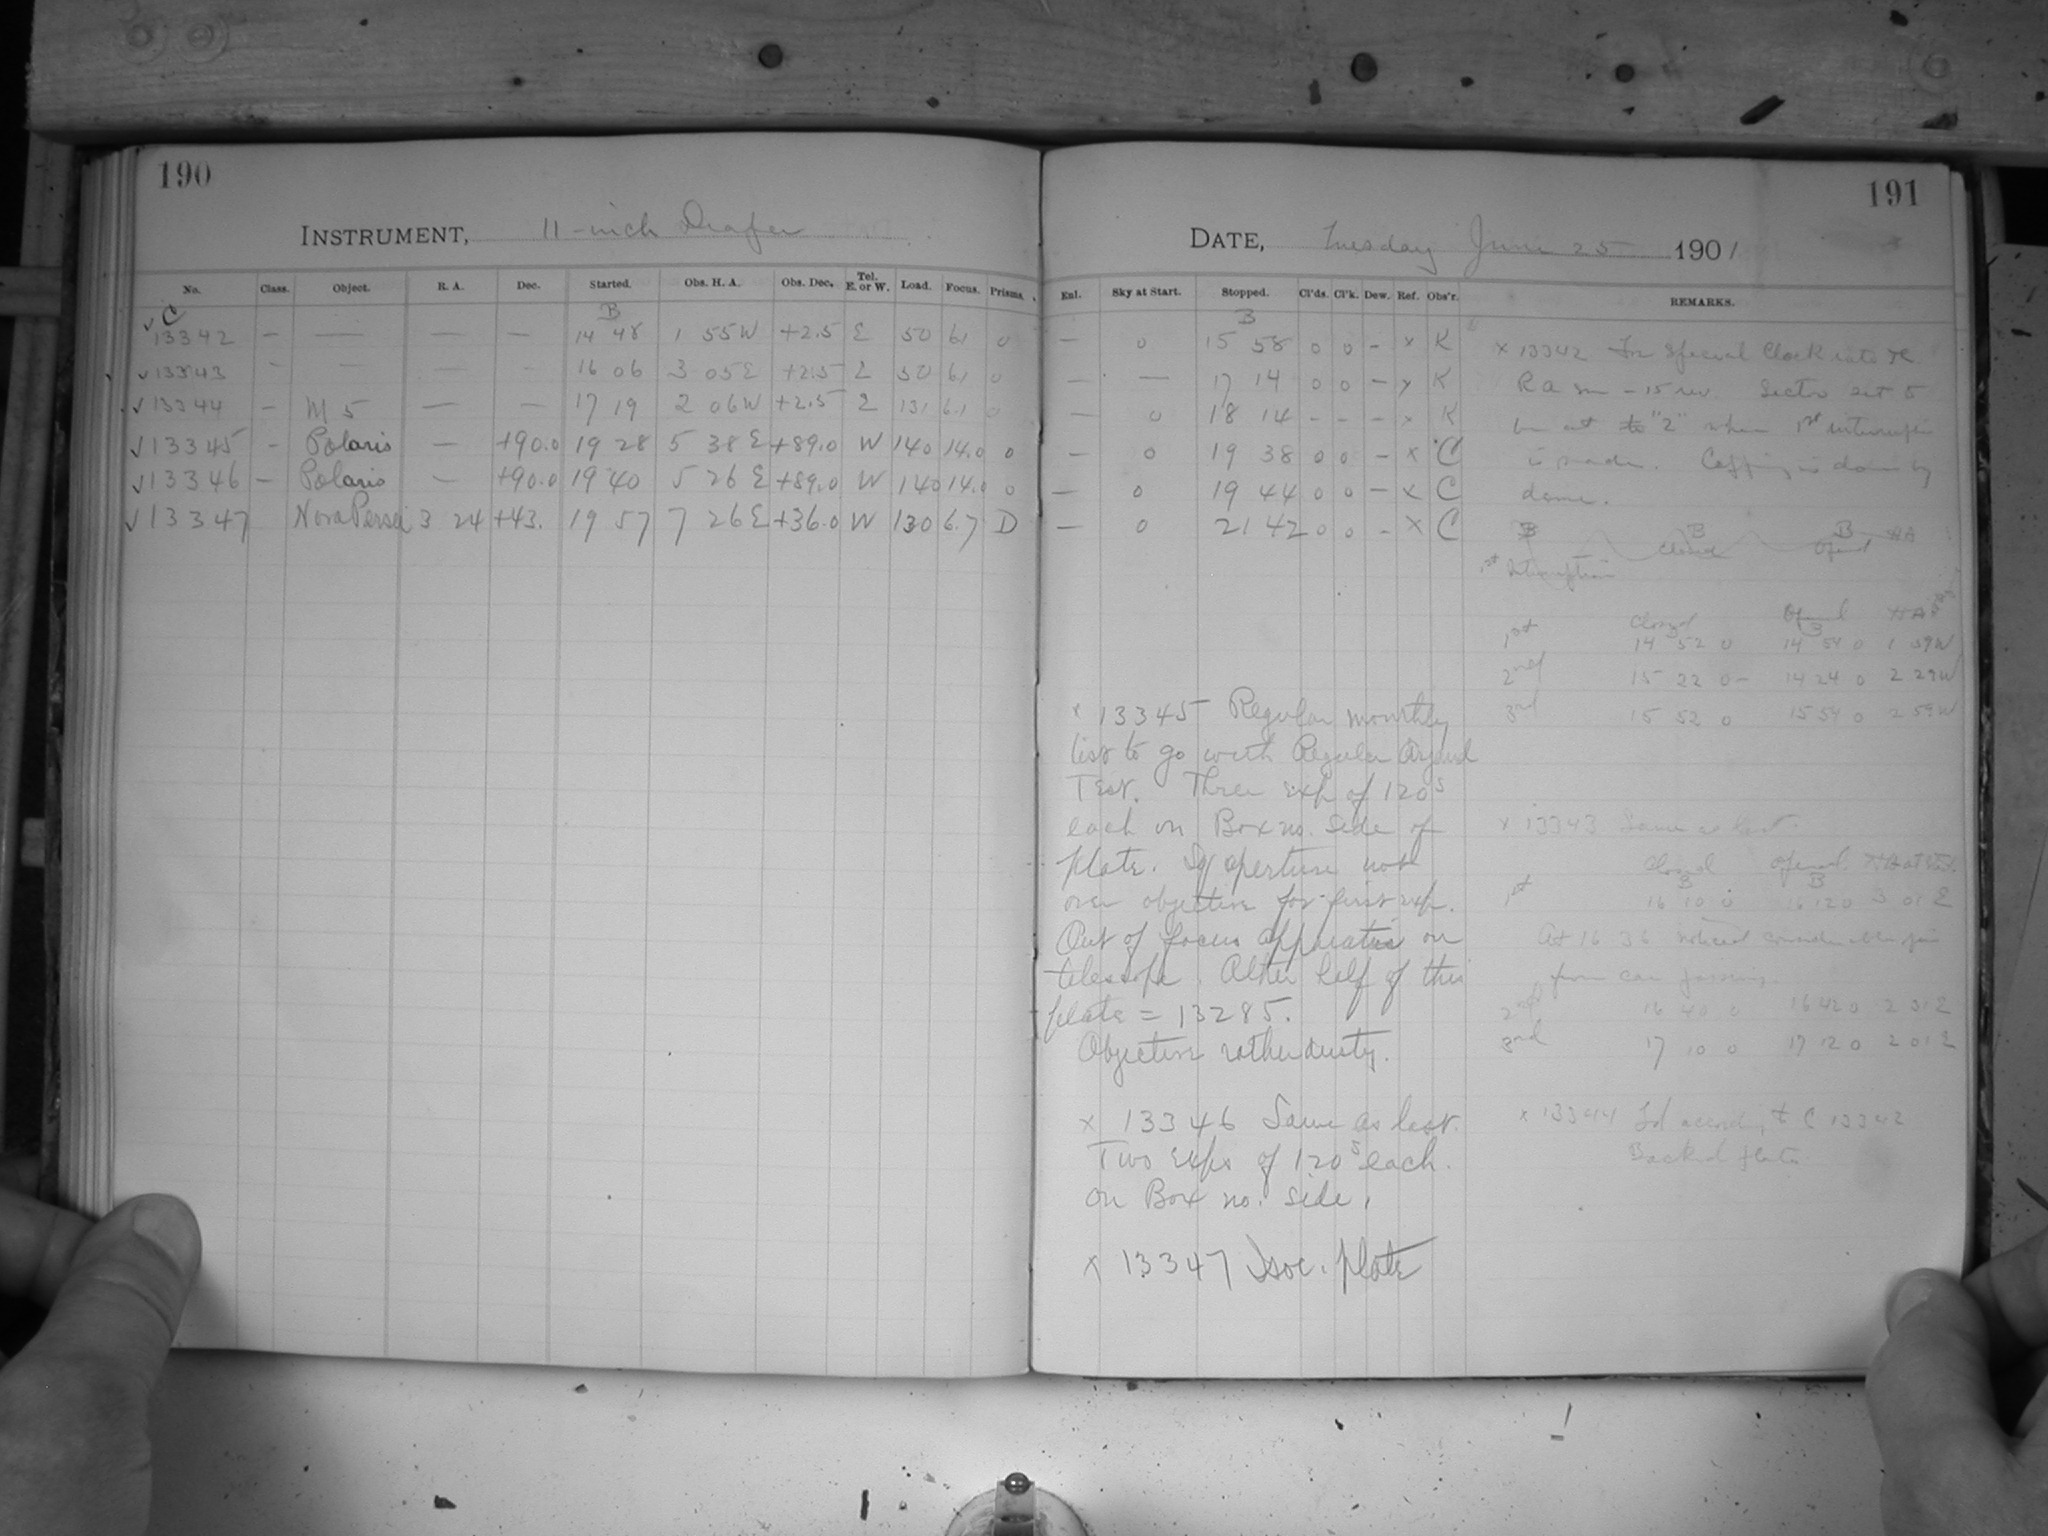 190
INSTRUMENT, 11-inch Draper
No. Class. Object. R. A. Dec. Started. Obs. H. A. Obs. Dec. Tel. E. or W. Load. Focus. Prisms.
C B
13342 — — — — 14 48 1 55W +2.5 E 50 6.1 0
13343 — — — — 16 06 3 05E +2.5 E 50 6.1 0
13344 — M 5 — — 17 19 2 06W +2.5 E 131 6.1 0
13345 — Polaris — +90.0 19 28 5 38E +89.0 W 140 14.0 0
13346 — Polaris — +90.0 19 40 5 26E +89.0 W 140 14.0 0
13347 Nova Persei 3 24 +43. 19 57 7 26E +36.0 W 130 6.7 D
191
DATE, Tuesday June 25 1901
Enl. Sky at Start. Stopped. Cl'ds. Cl'k. Dew. Ref. Obs'r. REMARKS.
B
— 0 15 58 0 0 - x K
— — 17 14 0 0 - x K
— 0 18 14 - - - x K
— 0 19 38 0 0 - x C
— 0 19 44 0 0 - x C
— 0 21 42 0 0 - x C
x 13345 Regular monthly
test to go with Regular
Test. Three exp of 120s
each on Box no. side of
plate. Sq aperture not
over objective for first exp.
Out of focus apparatus on
telescope. Other half of this
plate = 13285.
Objective rather dusty.
x 13346 Same as last.
Two exps of 120s each.
on Box no. side.
x 13347 Isoc. plate
x 13342 For Special Clock rate
"2" when 1st interruption
is made. Capping is done by
dome.
B B B HA
Closed Opened
1st Interruption
Closed Opened HA
1st 14 52 0 14 54 0 1 59W
2nd 15 22 0 - 14 24 0 2 29W
3rd 15 52 0 15 54 0 2 59W
x 13343 Same as last.
Closed Opened
B B
1st 16 10 0 16 12 0 3 01 E
At 16 36 noticed
from car passing.
2nd 16 40 0 16 42 0 2 31 E
3rd 17 10 0 17 12 0 2 01 E
x 13344 according to C 13342
Backed plate